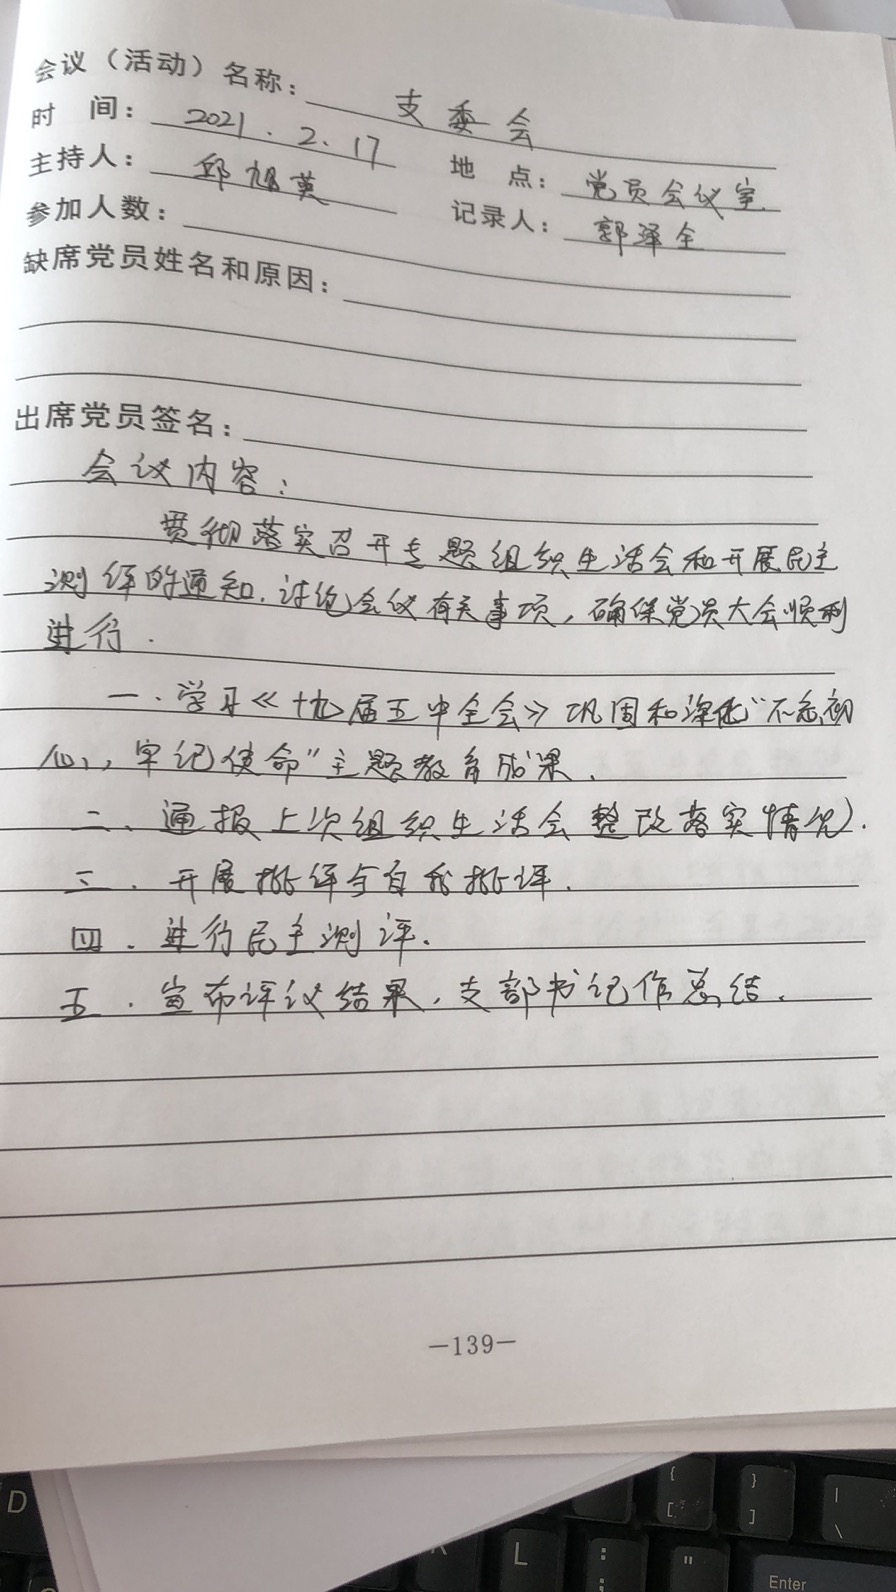 会议（活动）名称：支委会
时 间：2021.2.17 地 点：党员会议室
主持人：邱旭英 记录人：郭泽全
参加人数：
缺席党员姓名和原因：
出席党员签名：
会议内容：
贯彻落实召开专题组织生活会和开展民主
测评的通知.讨论会议有关事项，确保党员大会顺利
进行.
一.学习《十九届五中全会》巩固和深化“不忘初
心，牢记使命”主题教育成果.
二、通报上次组织生活会整改落实情况.
三.开展批评与自我批评.
四.进行民主测评.
五.宣布评议结果.支部书记作总结.
—139—
D
L
{
[
}
]
|
\
:
;
"
Enter